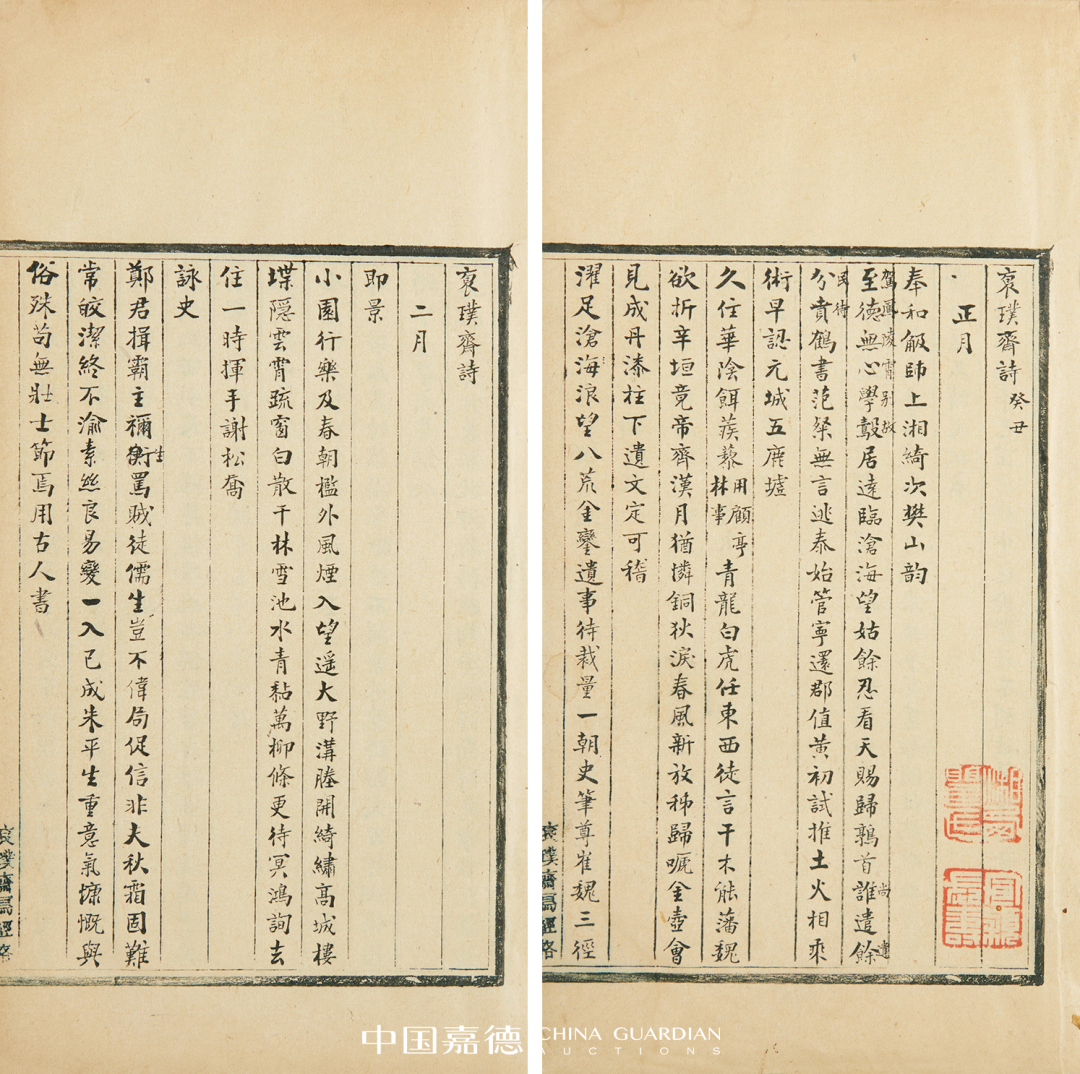 裒璞齋詩 癸丑
正月
奉和瓻師上湘綺次樊山韵
至德無心學鷇居遠臨滄海望姑餘忍看天賜歸鶉首誰遣餘
分賁鶴書范粲無言逃泰始管寧還郡值黃初試推土火相乘
術早認元城五鹿墟
久住華陰餌蒺藜用顧亭林事青龍白虎任東西徒言干木能藩魏
欲折辛垣竟帝齊漢月猶憐銅狄淚春風新放秭歸嗁金壺會
見成丹漆柱下遺文定可稽
濯足滄海浪望八荒金鑾遺事待裁量一朝史筆尊崔魏三徑
裒璞齋寫經格
裒璞齋詩
二月
即景
小園行樂及春朝檻外風煙入望遥大野溝塍開綺繡高城樓
堞隱雲霄疏窗白散千林雪池水青黏萬柳條更待冥鴻詢去
住一時揮手謝松喬
詠史
鄭君揖霸主禰衡罵賊徒儒生豈不偉局促信非夫秋霜固難
生
常皎潔終不渝素絲良易變一入已成朱平生重意氣慷慨與
俗殊苟無壯士節焉用古人書
裒璞齋寫經格
中国嘉德 CHINA GUARDIAN
AUCTIONS